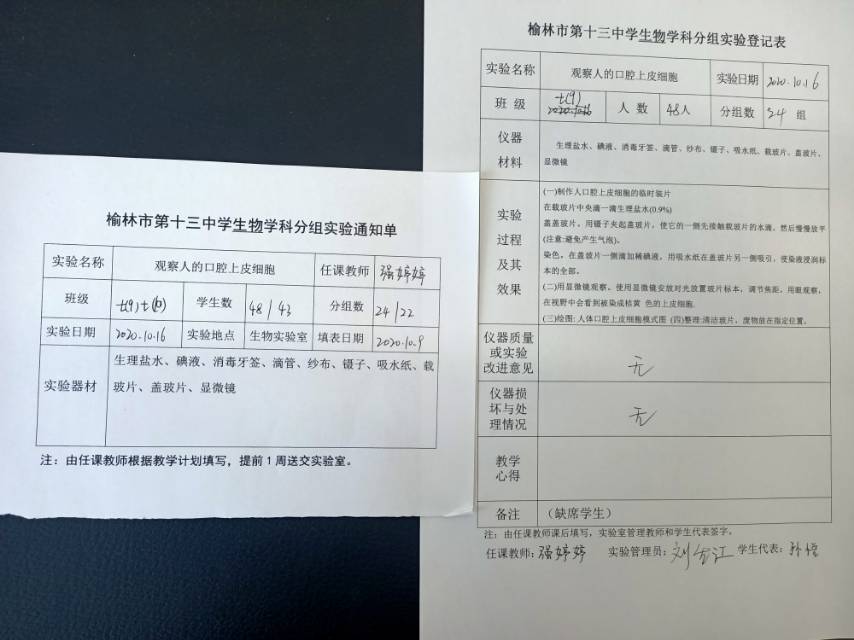 榆林市第十三中学生物学科分组实验通知单
实验名称 观察人的口腔上皮细胞 任课教师 强婷婷
班级 七(9),七(10) 学生数 48/43 分组数 24/22
实验日期 2020.10.16 实验地点 生物实验室 填表日期 2020.10.9
实验器材
生理盐水、碘液、消毒牙签、滴管、纱布、镊子、吸水纸、载
玻片、盖玻片、显微镜
注：由任课教师根据教学计划填写，提前1周送交实验室。
榆林市第十三中学生物学科分组实验登记表
实验名称 观察人的口腔上皮细胞 实验日期 2020.10.16
七(9)
班 级 2020.10.16 人 数 48人 分组数 24 组
仪器
材料
生理盐水、碘液、消毒牙签、滴管、纱布、镊子、吸水纸、载玻片、盖玻片、
显微镜
实验
过程
及其
效果
(一)制作人口腔上皮细胞的临时装片
在载玻片中央滴一滴生理盐水(0.9%)
盖盖玻片。用镊子夹起盖玻片，使它的一侧先接触载玻片的水滴，然后慢慢放平
(注意:避免产生气泡)。
染色。在盖玻片一侧滴加稀碘液，用吸水纸在盖玻片另一侧吸引，使染液浸润标
本的全部。
(二)用显微镜观察。使用显微镜安放对光放置玻片标本，调节焦距，用眼观察，
在视野中会看到被染成桔黄 色的上皮细胞.
(三)绘图: 人体口腔上皮细胞模式图 (四)整理:清洁玻片，废物放在指定位置.
仪器质量
或实验
改进意见
无
仪器损
坏与处
理情况
无
教学
心得
备注 （缺席学生）
注：由任课教师课后填写，实验室管理教师和学生代表签字。
任课教师: 强婷婷 实验管理员: 学生代表: